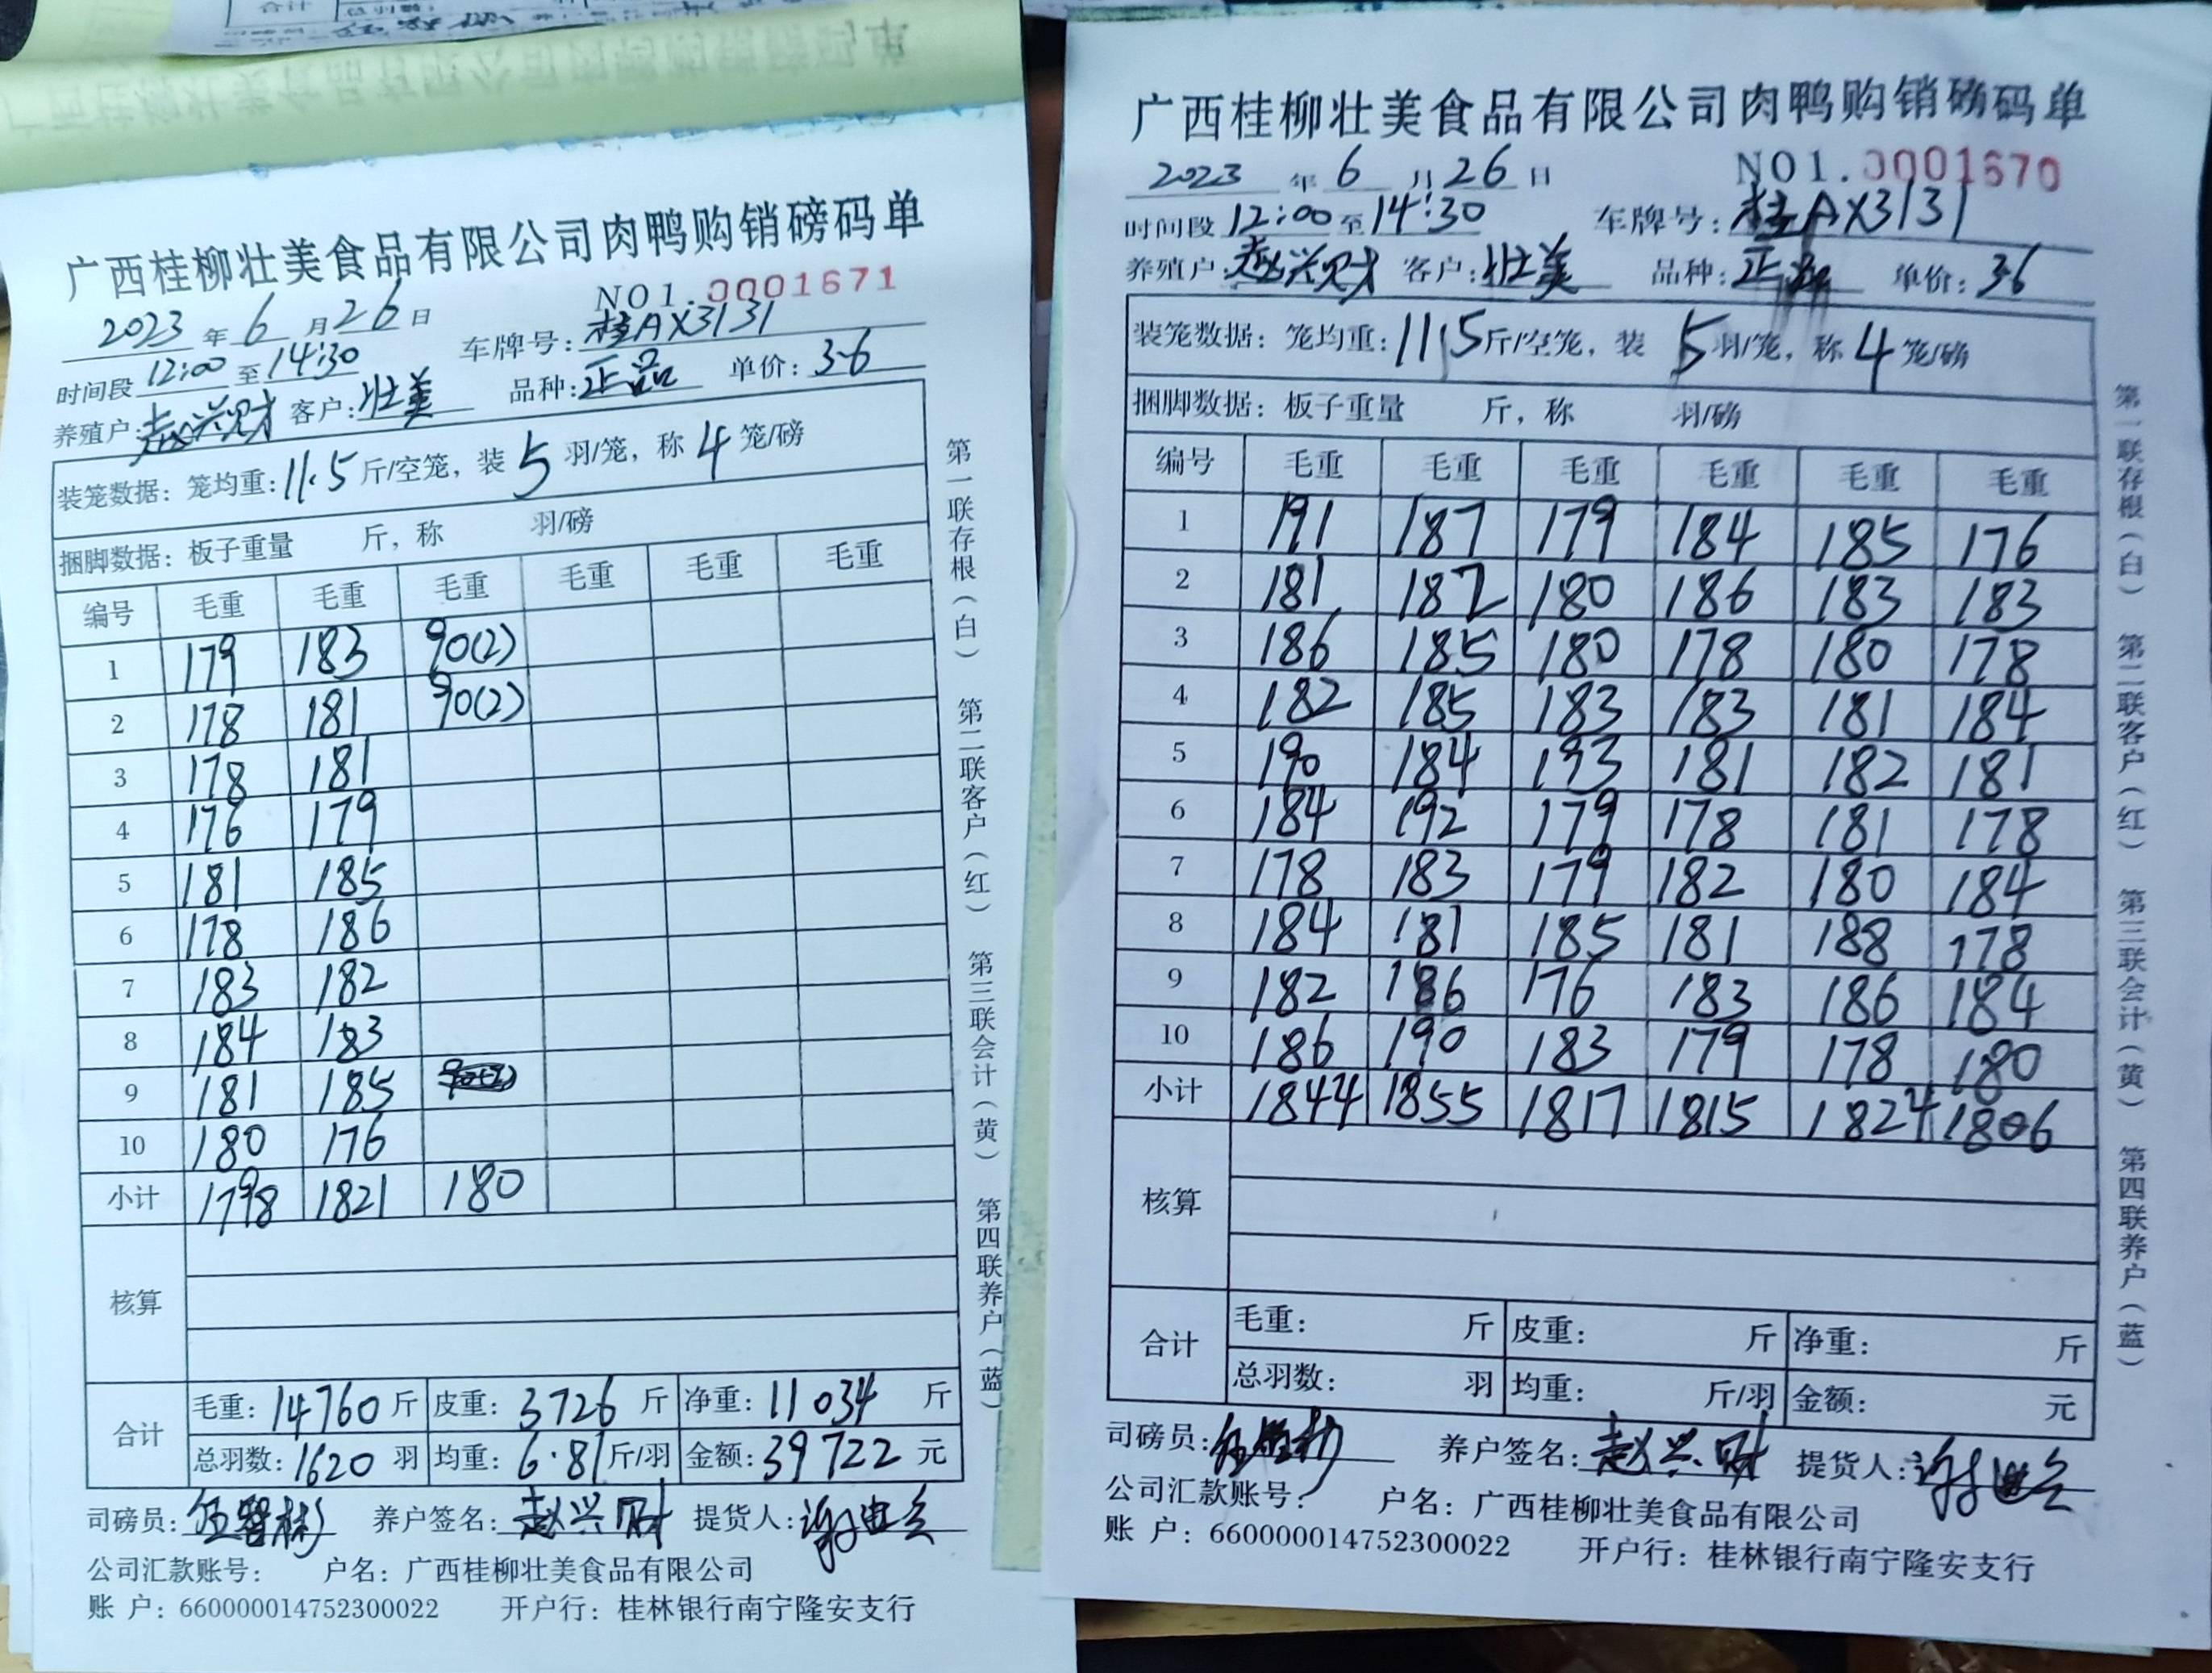 广西桂柳壮美食品有限公司肉鸭购销磅码单
NO1.0001671
2023 年 6 月 26 日
时间段 12:00 至 14:30 车牌号: 桂AX3131
养殖户: 赵兴财 客户: 壮美 品种: 正品 单价: 3.6
装笼数据: 笼均重: 11.5 斤/空笼, 装 5 羽/笼, 称 4 笼/磅
捆脚数据: 板子重量 斤, 称 羽/磅
编号 毛重 毛重 毛重 毛重 毛重 毛重
1 179 183 90(2)
2 178 181 90(2)
3 178 181
4 176 179
5 181 185
6 178 186
7 183 182
8 184 183
9 181 185
10 180 176
小计 1798 1821 180
核算
合计 毛重: 14760 斤 皮重: 3726 斤 净重: 11034 斤
总羽数: 1620 羽 均重: 6.81 斤/羽 金额: 39722 元
司磅员: 养户签名: 赵兴财 提货人:
公司汇款账号: 户名: 广西桂柳壮美食品有限公司
账 户: 660000014752300022 开户行: 桂林银行南宁隆安支行
第一联存根(白) 第二联客户(红) 第三联会计(黄) 第四联养户(蓝)
广西桂柳壮美食品有限公司肉鸭购销磅码单
2023 年 6 月 26 日 NO1.0001670
时间段 12:00 至 14:30 车牌号: 桂AX3131
养殖户: 赵兴财 客户: 壮美 品种: 正品 单价: 3.6
装笼数据: 笼均重: 11.5 斤/空笼, 装 5 羽/笼, 称 4 笼/磅
捆脚数据: 板子重量 斤, 称 羽/磅
编号 毛重 毛重 毛重 毛重 毛重 毛重
1 191 187 179 184 185 176
2 181 182 180 186 183 183
3 186 185 180 178 180 178
4 182 185 183 183 181 184
5 190 184 193 181 182 181
6 184 192 179 178 181 178
7 178 183 179 182 180 184
8 184 181 185 181 188 178
9 182 186 176 183 186 184
10 186 190 183 179 178 180
小计 1844 1855 1817 1815 1824 1806
核算
合计 毛重: 斤 皮重: 斤 净重: 斤
总羽数: 羽 均重: 斤/羽 金额: 元
司磅员: 养户签名: 赵兴财 提货人:
公司汇款账号: 户名: 广西桂柳壮美食品有限公司
账 户: 660000014752300022 开户行: 桂林银行南宁隆安支行
第一联存根(白) 第二联客户(红) 第三联会计(黄) 第四联养户(蓝)